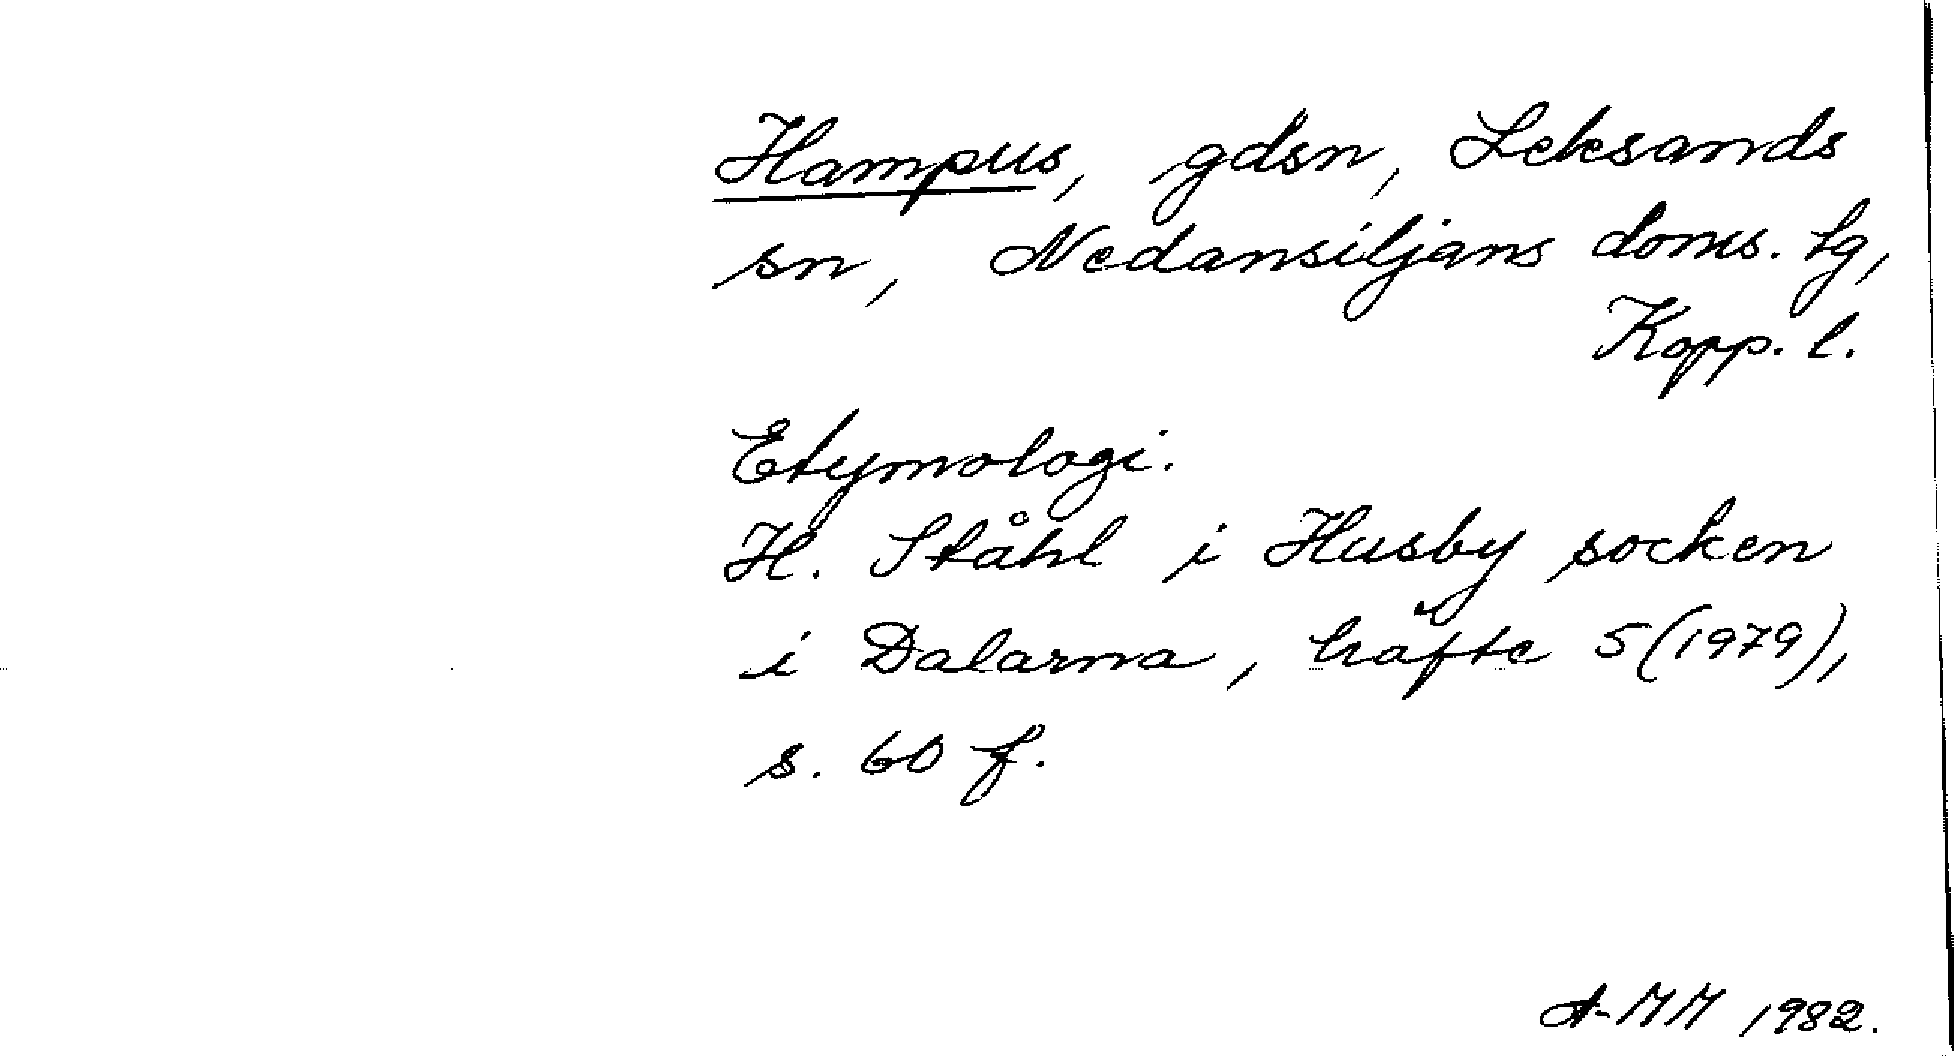 Hampus, gdsn, Leksands
sn, Nedansiljans doms. tg,
Kopp. l.
Etymologi.
H. Ståhl i Husby socken
i Dalarna, häfte 5 (1979),
s. 60 f.
A-MM 1982.